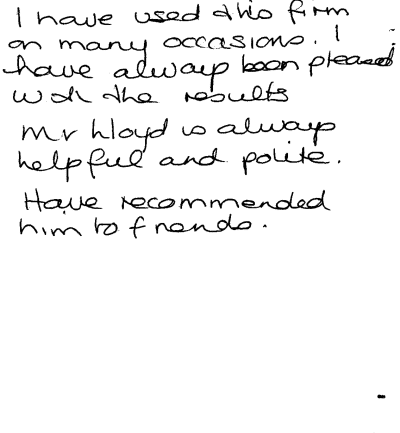 I have used this firm
on many occasions. I
have always been pleased
with the results
Mr Lloyd is always
helpful and polite.
Have recommended
him to friends.